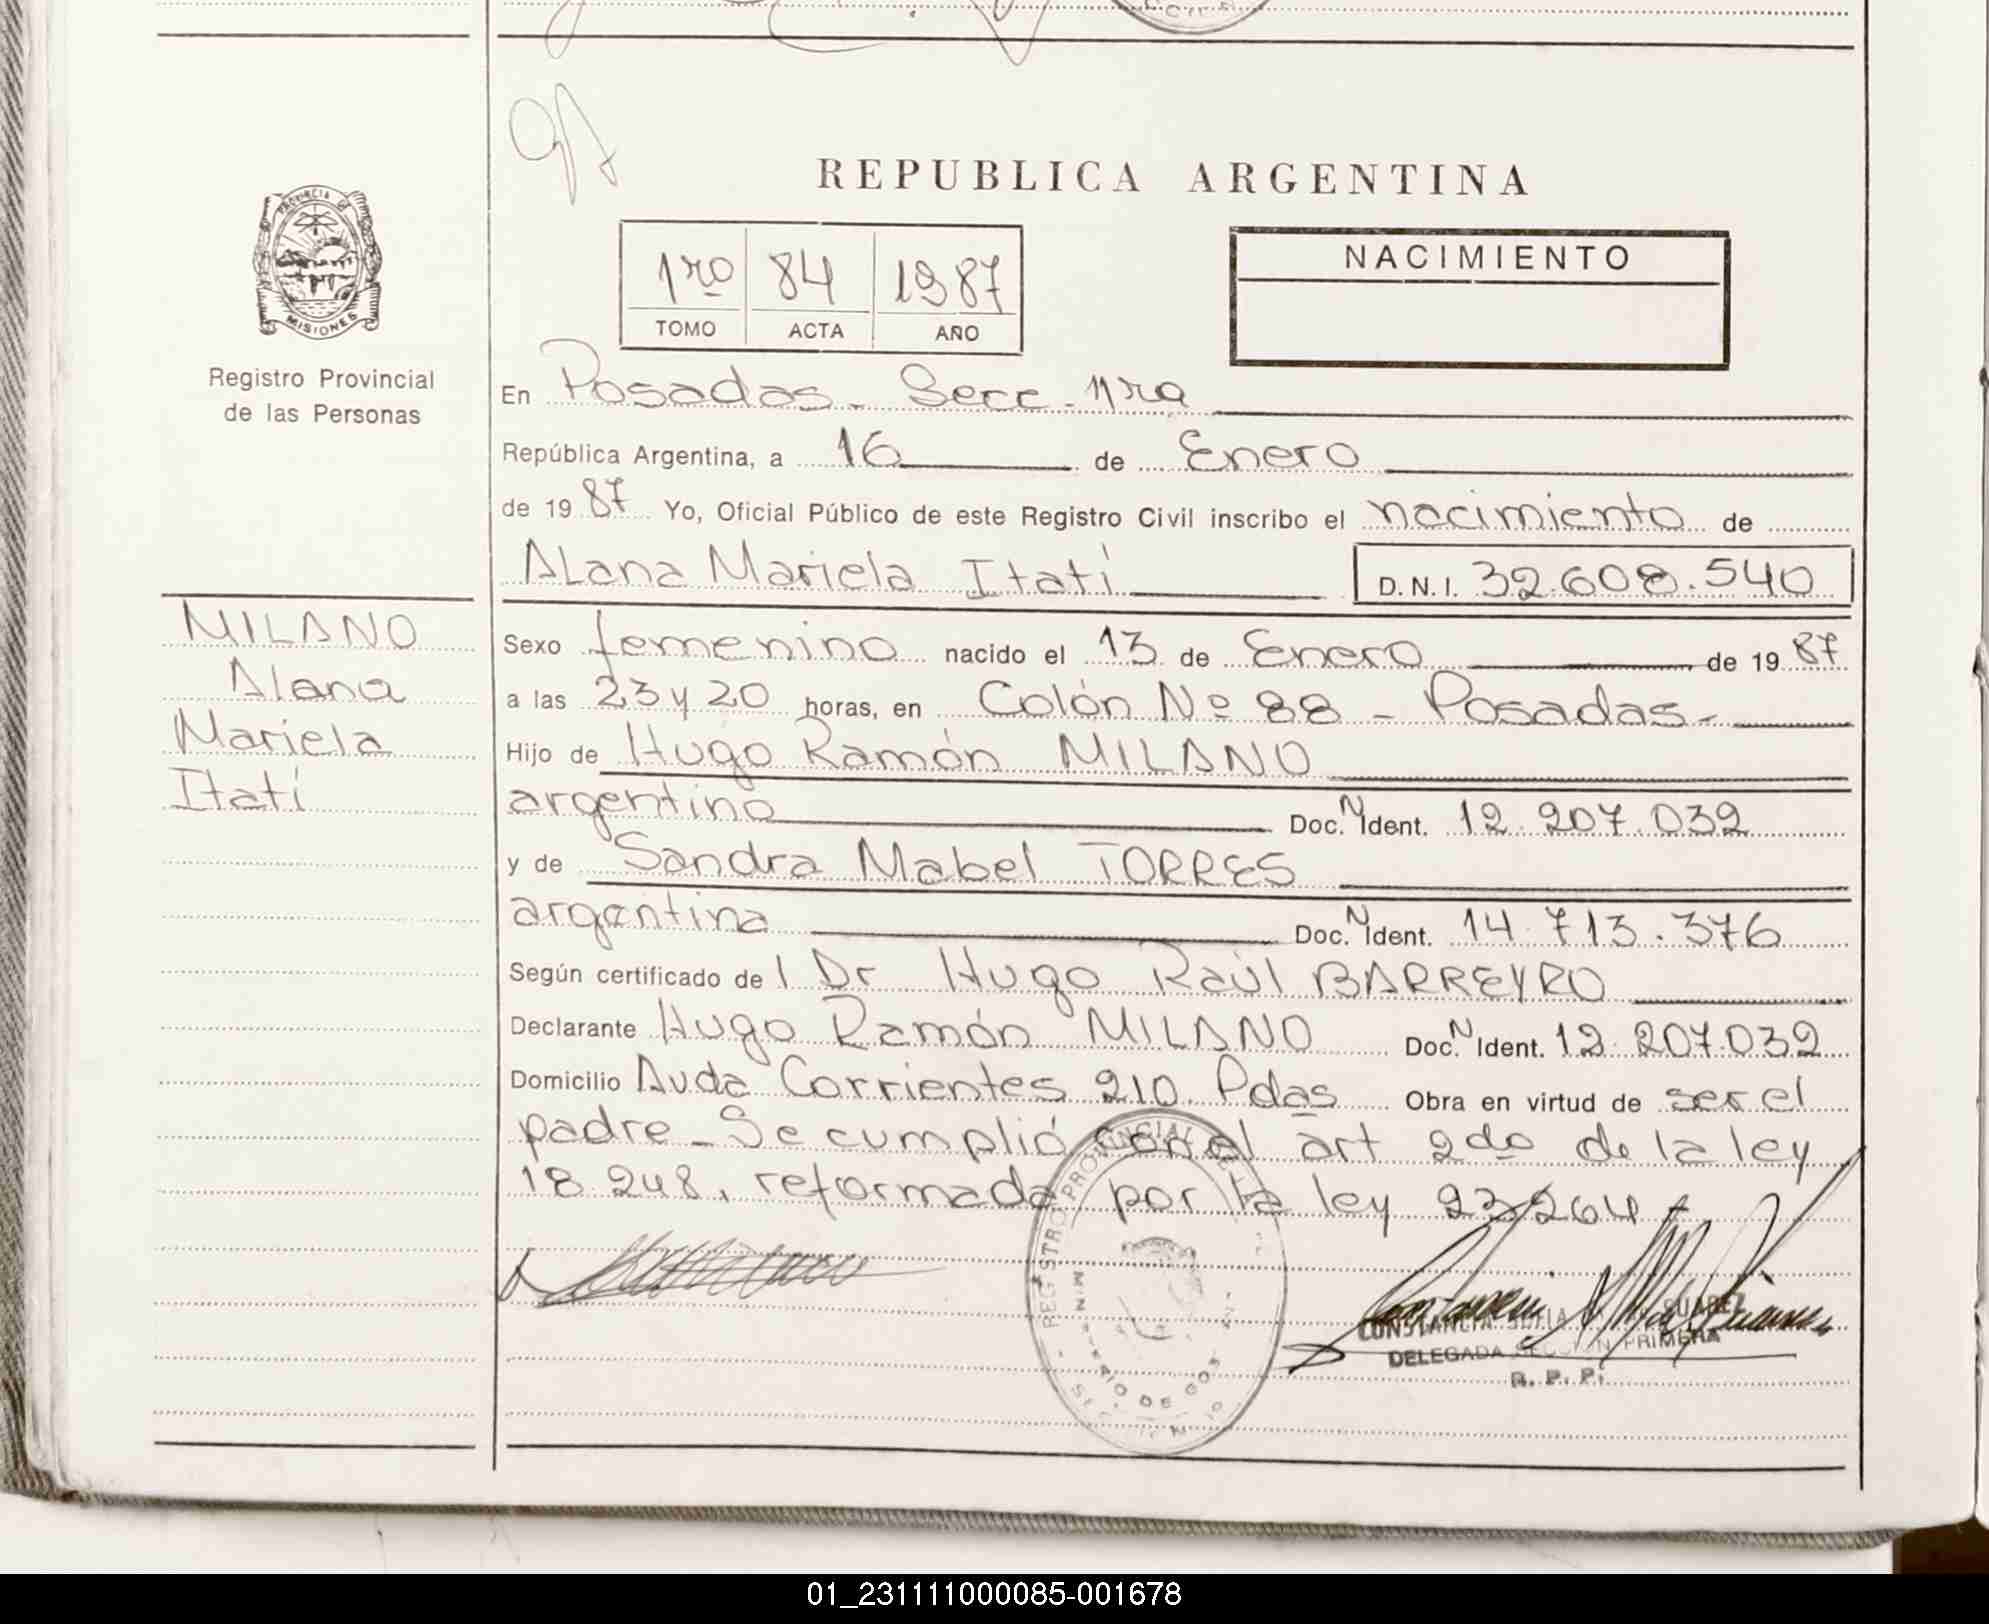 REPUBLICA ARGENTINA
PROVINCIA DE
MISIONES
Registro Provincial
de las Personas
1ro 84 1987
TOMO ACTA AÑO
NACIMIENTO
En Posadas - Secc. 1ra
República Argentina, a 16 de Enero
de 19 87 Yo, Oficial Público de este Registro Civil inscribo el nacimiento de
Alana Mariela Itatí D.N.I. 32.608.540
MILANO
Alana
Mariela
Itatí
Sexo femenino nacido el 13 de Enero de 19 87
a las 23 y 20 horas, en Colón Nº 88 - Posadas -
Hijo de Hugo Ramón MILANO
argentino Doc. N Ident. 12.207.032
y de Sandra Mabel TORRES
argentina Doc. N Ident. 14.713.376
Según certificado de l Dr Hugo Raúl BARREYRO
Declarante Hugo Ramón MILANO Doc. N Ident. 12.207.032
Domicilio Avda Corrientes 210 Pdas Obra en virtud de ser el
padre - Se cumplió con el art 2do de la ley
18.248, reformada por la ley 23264
REGISTRO PROVINCIAL DE
CONSTANCIA SOFIA SUAREZ
DELEGADA SECCION PRIMERA
R. P. P.
01_231111000085-001678